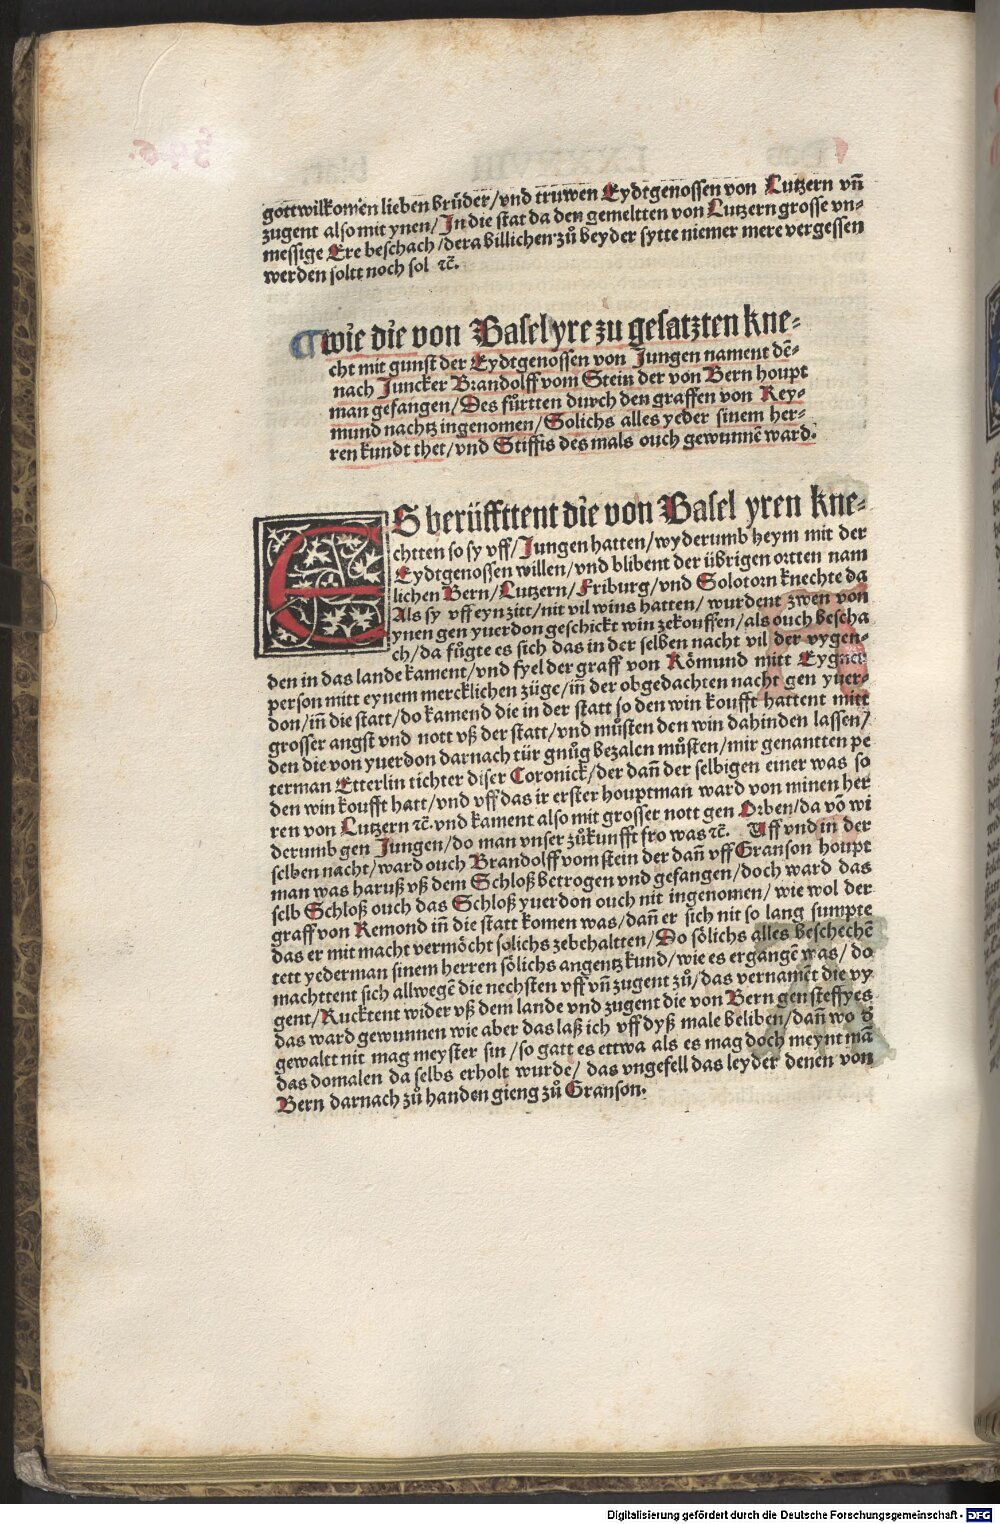 gottwilkomen lieben brüder/vnd truwen Eydtgenossen von Lutzern vn̄
zugent also mit ynen/In die stat da den gemeltten von Lutzern grosse vn-
messige Ere beschach/dera billichen zů beyder sytte niemer mere vergessen
werden soltt noch sol ⁊c̄.
¶ wie die von Basel yre zu gesatzten kne-
cht mit gunst der Eydtgenossen von Jungen nament dē-
nach Juncker Brandolff vom Stein der von Bern houpt
man gefangen/Des fůrtten durch den graffen von Rey-
mund nachtz ingenomen/Solichs alles yeder sinem her-
ren kundt thet/vnd Stiffis des mals ouch gewunnē ward.
ES berüffttent die von Basel yren kne-
chtten so sy vff/Jungen hatten/wyderumb heym mit der
Eydtgenossen willen/vnd blibent der übrigen ortten nam
lichen Bern/Lutzern/Friburg/vnd Solotorn knechte da
Als sy vff eyn zitt/nit vil wins hatten/wurdent zwen von
ynen gen yuerdon geschickt win zekouffen/als ouch bescha
ch/da fůgte es sich das in der selben nacht vil der vygen-
den in das lande kament/vnd fyel der graff von Römund mitt Eygner
person mitt eynem mercklichen züge/in̄ der obgedachten nacht gen yuer-
don/in̄ die statt/do kamend die in der statt so den win koufft hattent mitt
grosser angst vnd nott vß der statt/vnd můsten den win dahinden lassen/
den die von yuerdon darnach tür gnůg bezalen můsten/mir genantten pe
terman Etterlin tichter diser Coronick/der dan̄ der selbigen einer was so
den win koufft hatt/vnd vff das ir erster houptman ward von minen her
ren von Lutzern ⁊c̄. vnd kament also mit grosser nott gen Orben/da vō wi
derumb gen Jungen/do man vnser zůkunfft fro was ⁊c̄. Vff vnd in der
selben nacht/ward ouch Brandolff vom stein der dan̄ vff Granson houpt
man was haruß vß dem Schloß betrogen vnd gefangen/doch ward das
selb Schloß ouch das Schloß yuerdon ouch nit ingenomen/wie wol der
graff von Remond in̄ die statt komen was/dan̄ er sich nit so lang sumpte
das er mit macht vermöcht solichs zebehaltten/Do sölichs alles beschechē
tett yederman sinem herren sölichs angentz kund/wie es ergangē was/do
machttent sich allwegē die nechsten vff vn̄ zugent zů/das vernamēt die vy
gent/Rucktent wider vß dem lande vnd zugent die von Bern gen steffyes
das ward gewunnen wie aber das laß ich vff dyß male beliben/dan̄ wo d̕
gewaltt nit mag meyster sin/so gatt es ettwa als es mag doch meynt mā
das domalen da selbs erholt wurde/das vngefell das leyder denen von
Bern darnach zů handen gieng zů Granson.
Digitalisierung gefördert durch die Deutsche Forschungsgemeinschaft - DFG